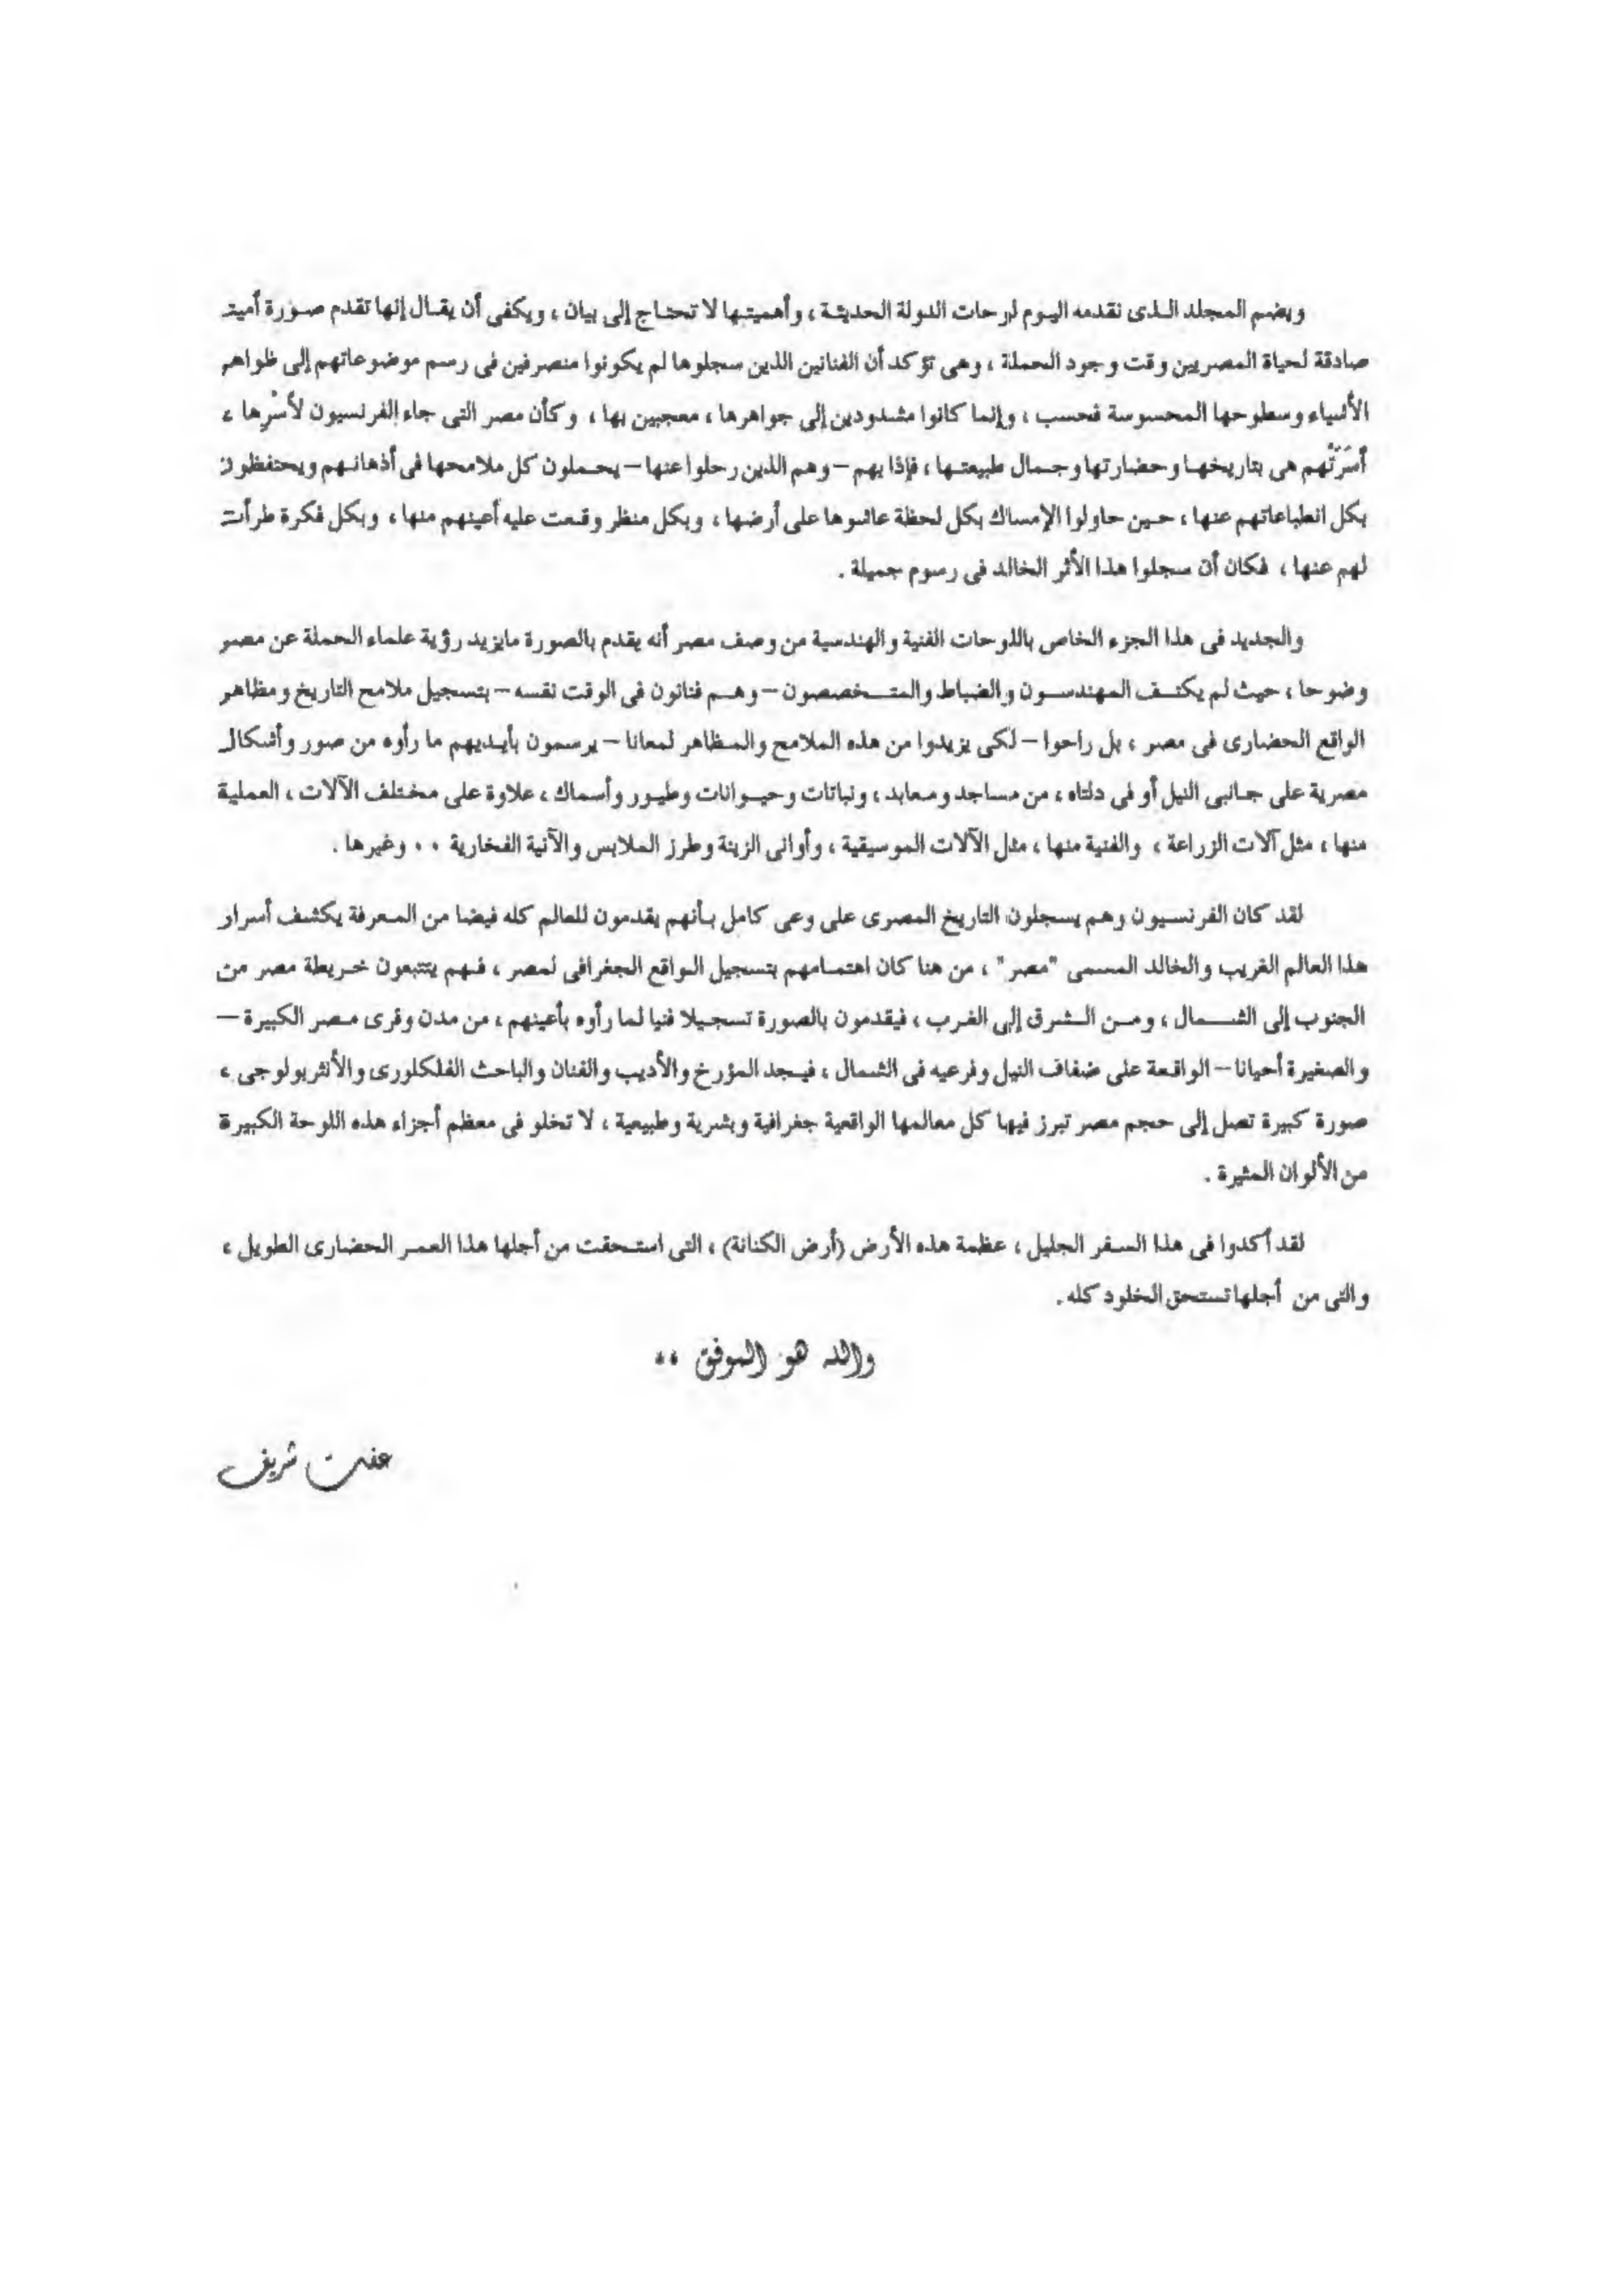 ويضم المجلد الذى نقدمه اليوم لوحات الدولة الحديثة ، وأهميتها لا تحتاج إلى بيان ، ويكفى أن يقال إنها تقدم صورة أمينة
صادقة لحياة المصريين وقت وجود الحملة ، وهى تؤكد أن الفنانين الذين سجلوها لم يكونوا منصرفين فى رسم موضوعاتهم إلى ظواهر
الأشياء وسطوحها المحسوسة فحسب ، وإنما كانوا مشدودين إلى جواهرها ، معجبين بها ، وكأن مصر التى جاء الفرنسيون لأسْرِها ،
أسَرَتْهم هى بتاريخها وحضارتها وجمال طبيعتها ، فإذا بهم – وهم الذين رحلوا عنها – يحملون كل ملامحها فى أذهانهم ويحتفظون
بكل انطباعاتهم عنها ، حين حاولوا الإمساك بكل لحظة عاشوها على أرضها ، وبكل منظر وقعت عليه أعينهم منها ، وبكل فكرة طرأت
لهم عنها ، فكان أن سجلوا هذا الأثر الخالد فى رسوم جميلة .
والجديد فى هذا الجزء الخاص باللوحات الفنية والهندسية من وصف مصر أنه يقدم بالصورة مايزيد رؤية علماء الحملة عن مصر
وضوحا ، حيث لم يكتف المهندسون والضباط والمتخصصون – وهم فنانون فى الوقت نفسه – بتسجيل ملامح التاريخ ومظاهر
الواقع الحضارى فى مصر ، بل راحوا – لكى يزيدوا من هذه الملامح والمظاهر لمعانا – يرسمون بأيديهم ما رأوه من صور وأشكال
مصرية على جانبى النيل أو فى دلتاه ، من مساجد ومعابد ، ونباتات وحيوانات وطيور وأسماك ، علاوة على مختلف الآلات ، العملية
منها ، مثل آلات الزراعة ، والفنية منها ، مثل الآلات الموسيقية ، وأوانى الزينة وطرز الملابس والآنية الفخارية ٠٠ وغيرها .
لقد كان الفرنسيون وهم يسجلون التاريخ المصرى على وعى كامل بأنهم يقدمون للعالم كله فيضا من المعرفة يكشف أسرار
هذا العالم الغريب والخالد المسمى "مصر" ، من هنا كان اهتمامهم بتسجيل الواقع الجغرافى لمصر ، فهم يتتبعون خريطة مصر من
الجنوب إلى الشمال ، ومن الشرق إلى الغرب ، فيقدمون بالصورة تسجيلا فنيا لما رأوه بأعينهم ، من مدن وقرى مصر الكبيرة –
والصغيرة أحيانا – الواقعة على ضفاف النيل وفرعيه فى الشمال ، فيجد المؤرخ والأديب والفنان والباحث الفلكلورى والأنثربولوجى ،
صورة كبيرة تصل إلى حجم مصر تبرز فيها كل معالمها الواقعية جغرافية وبشرية وطبيعية ، لا تخلو فى معظم أجزاء هذه اللوحة الكبيرة
من الألوان المثيرة .
لقد أكدوا فى هذا السفر الجليل ، عظمة هذه الأرض (أرض الكنانة) ، التى استحقت من أجلها هذا العمر الحضارى الطويل ،
والتى من أجلها تستحق الخلود كله .
والله هو الموفق ٠٠
عفت شريف